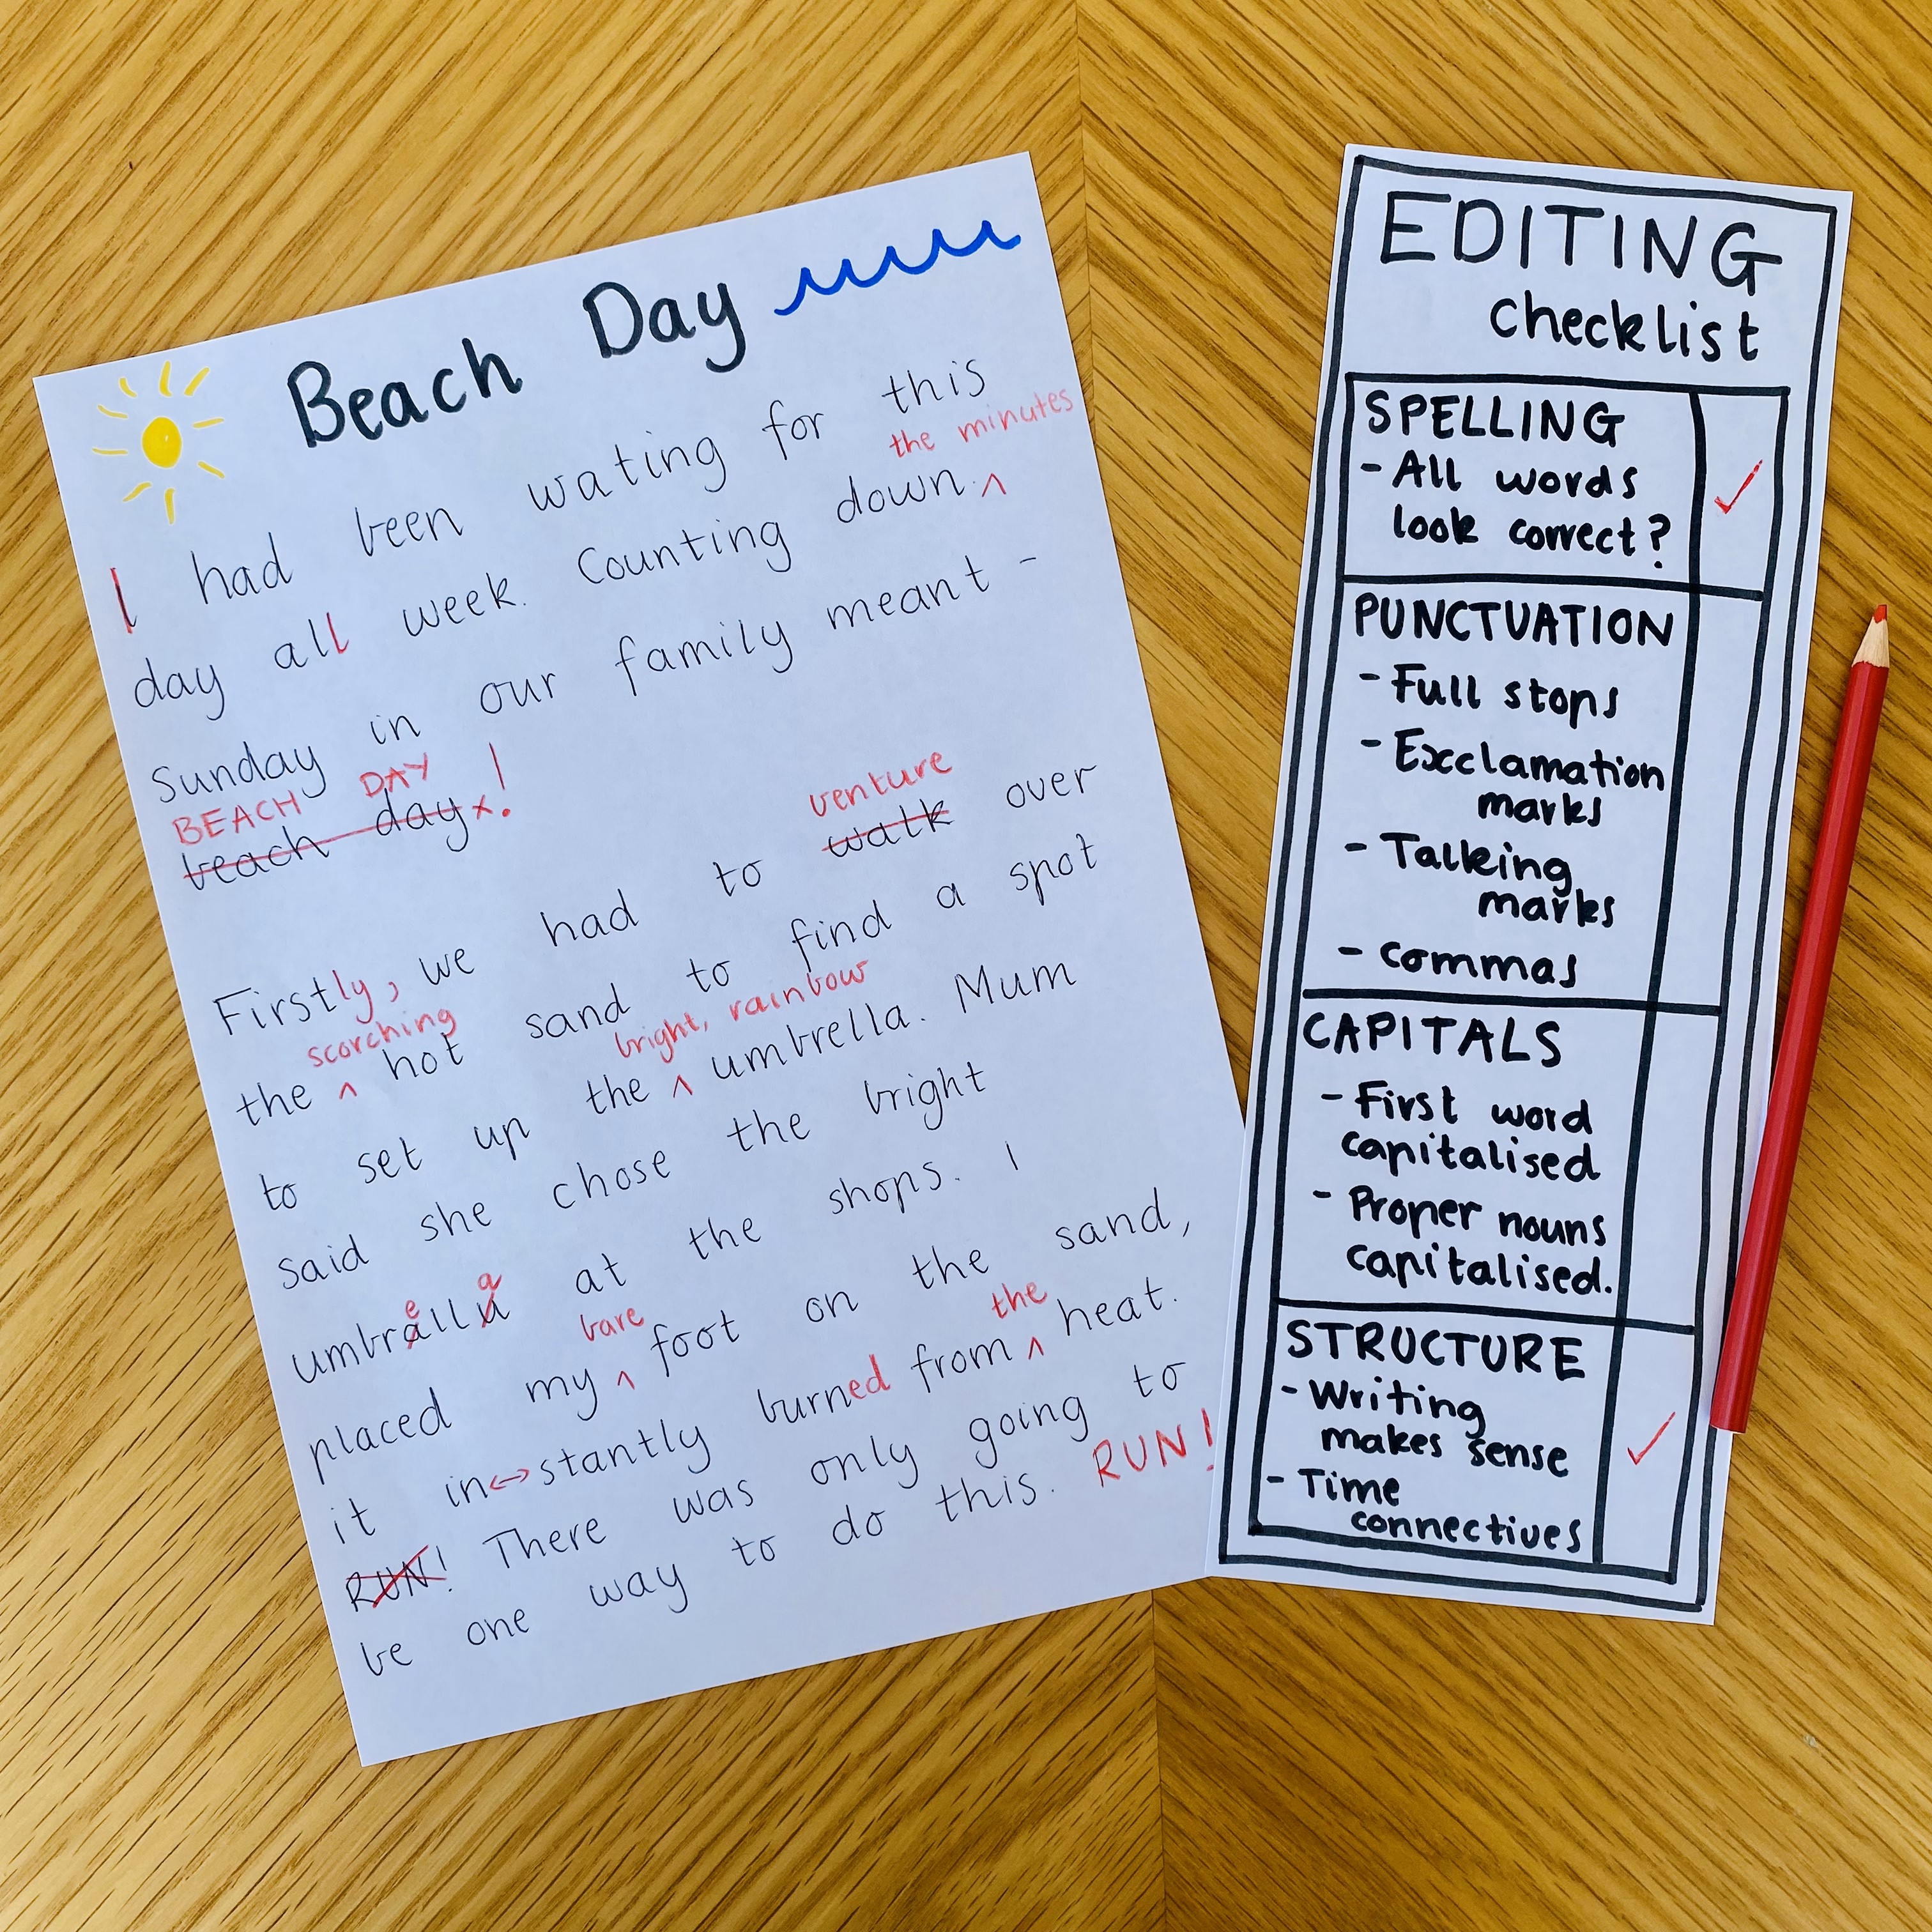 Beach Day
I had been wating for this
the minutes
day all week. Counting down.
Sunday in our family meant -
BEACH DAY
beach day x!
venture
Firstly, we had to walk over
scorching
the ^ hot sand to find a spot
bright, rainbow
to set up the ^ umbrella. Mum
said she chose the bright
e a
umbrallu at the shops. I
bare
placed my ^ foot on the sand,
the
it in<->stantly burned from ^ heat.
RUN! There was only going to
be one way to do this. RUN!
EDITING
checklist
SPELLING
- All words
look correct?
PUNCTUATION
- Full stops
- Exclamation
marks
- Talking
marks
- commas
CAPITALS
- First word
capitalised
- Proper nouns
capitalised.
STRUCTURE
- Writing
makes sense
- Time
connectives